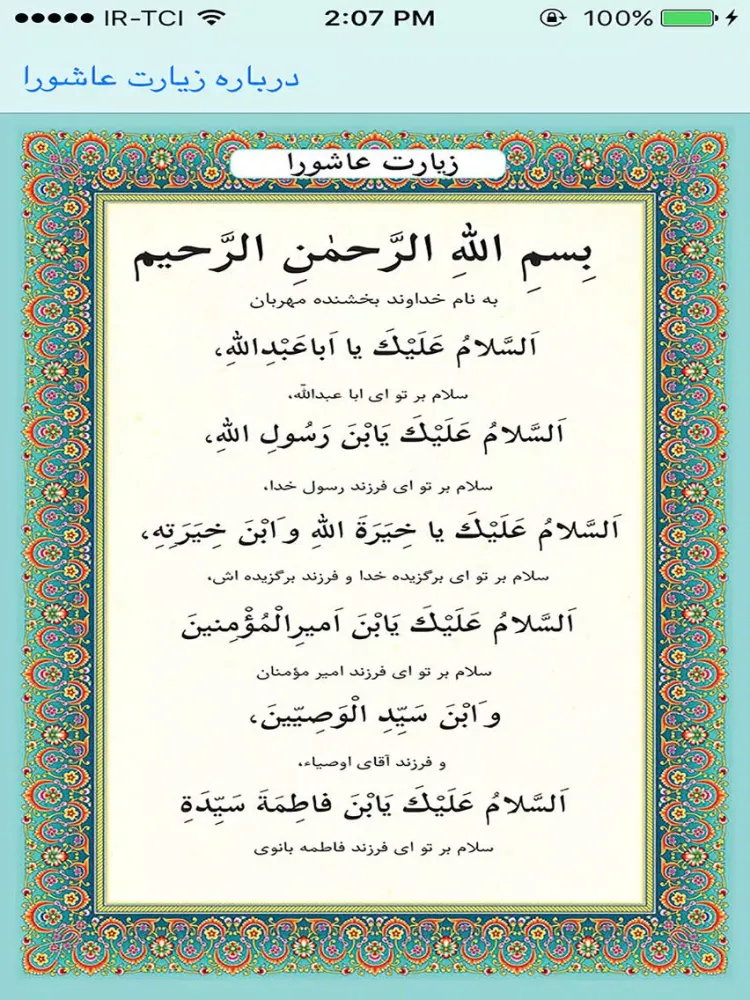 IR-TCI 2:07 PM 100%
درباره زیارت عاشورا
زیارت عاشورا
بِسمِ اللهِ الرَّحمٰنِ الرَّحیم
به نام خداوند بخشنده مهربان
اَلسَّلامُ عَلَيْكَ يا اَباعَبْدِاللهِ،
سلام بر تو ای ابا عبدالله،
اَلسَّلامُ عَلَيْكَ يَابْنَ رَسُولِ اللهِ،
سلام بر تو ای فرزند رسول خدا،
اَلسَّلامُ عَلَيْكَ يا خِيَرَةَ اللهِ وَابْنَ خِيَرَتِهِ،
سلام بر تو ای برگزیده خدا و فرزند برگزیده اش،
اَلسَّلامُ عَلَيْكَ يَابْنَ اَميرِالْمُؤْمِنينَ
سلام بر تو ای فرزند امیر مؤمنان
وَابْنَ سَيِّدِ الْوَصِيّينَ،
و فرزند آقای اوصیاء،
اَلسَّلامُ عَلَيْكَ يَابْنَ فاطِمَةَ سَيِّدَةِ
سلام بر تو ای فرزند فاطمه بانوی